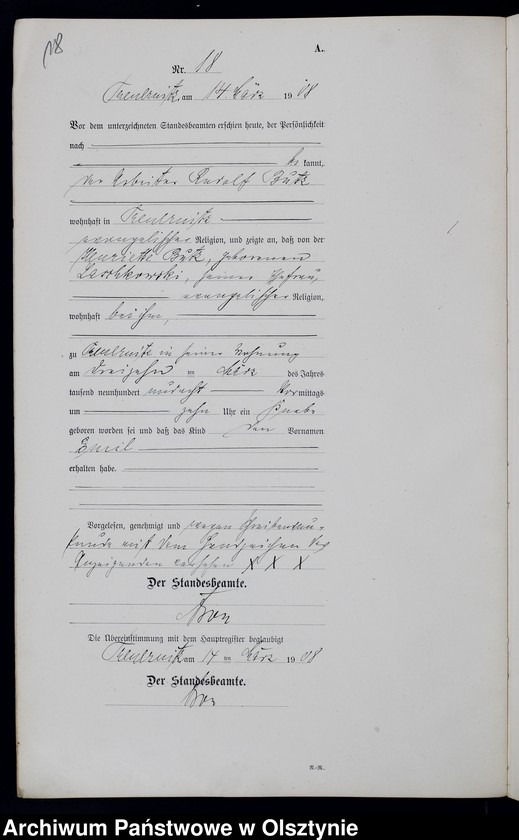 18
A.
Nr. 18
am 14 März 1908
Vor dem unterzeichneten Standesbeamten erschien heute, der Persönlichkeit
nach
be kannt,
der Arbeiter Rudolf Butz
wohnhaft in
evangelischer Religion, und zeigte an, daß von der
Henriette Butz, geborenen
seiner Ehefrau,
evangelischer Religion,
wohnhaft bei ihm,
zu in seiner Wohnung
am dreizehn ten März des Jahres
tausend neunhundert und acht Vor mittags
um zehn Uhr ein Knabe
geboren worden sei und daß das Kind den Vornamen
Emil
erhalten habe.
Vorgelesen, genehmigt und wegen Schreibensun-
kunde mit dem Handzeichen des
Anzeigenden versehen X X X
Der Standesbeamte.
Die Übereinstimmung mit dem Hauptregister beglaubigt
am 14 ten März 1908
Der Standesbeamte.
Archiwum Państwowe w Olsztynie